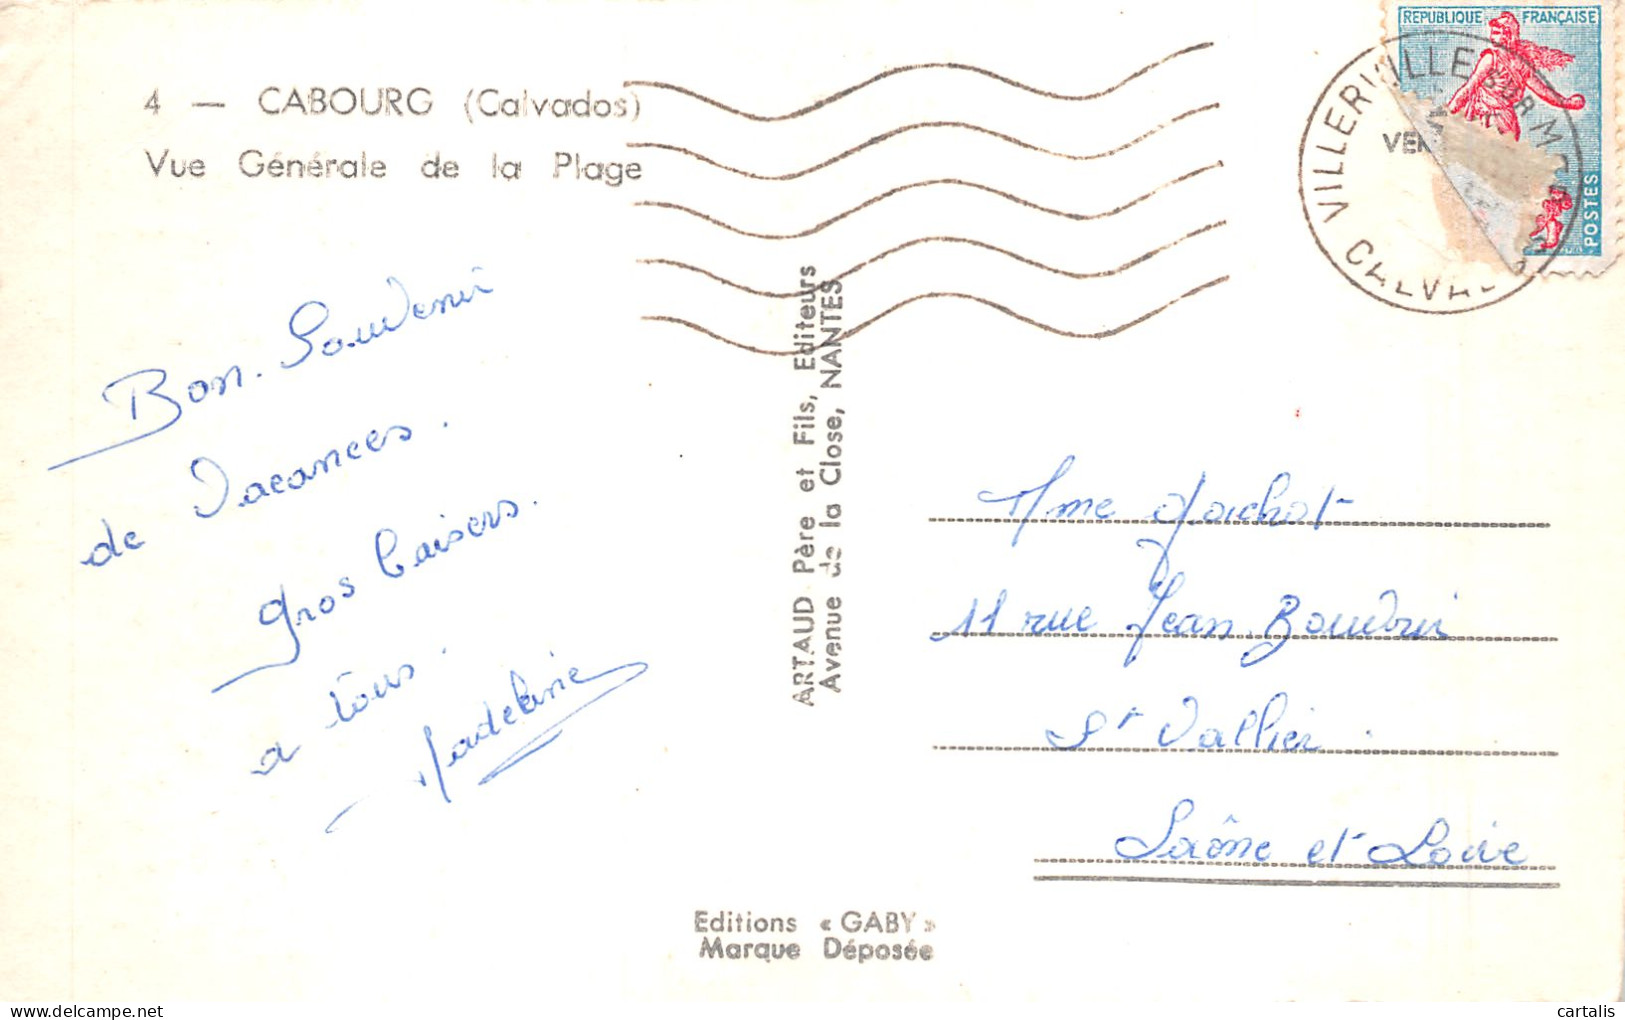 4 — CABOURG (Calvados)
Vue Générale de la Plage
Bon Souvenir
de Vacances.
Gros baisers.
a tous.
Madeleine
ARTAUD Père et Fils, Editeurs
Avenue de la Close, NANTES
REPUBLIQUE FRANÇAISE
POSTES
VILLERVILLE SUR MER
CALVA
Mme
11 rue Jean Bouvri
St Vallier.
Saône et Loire
Editions « GABY »
Marque Déposée
cartalis